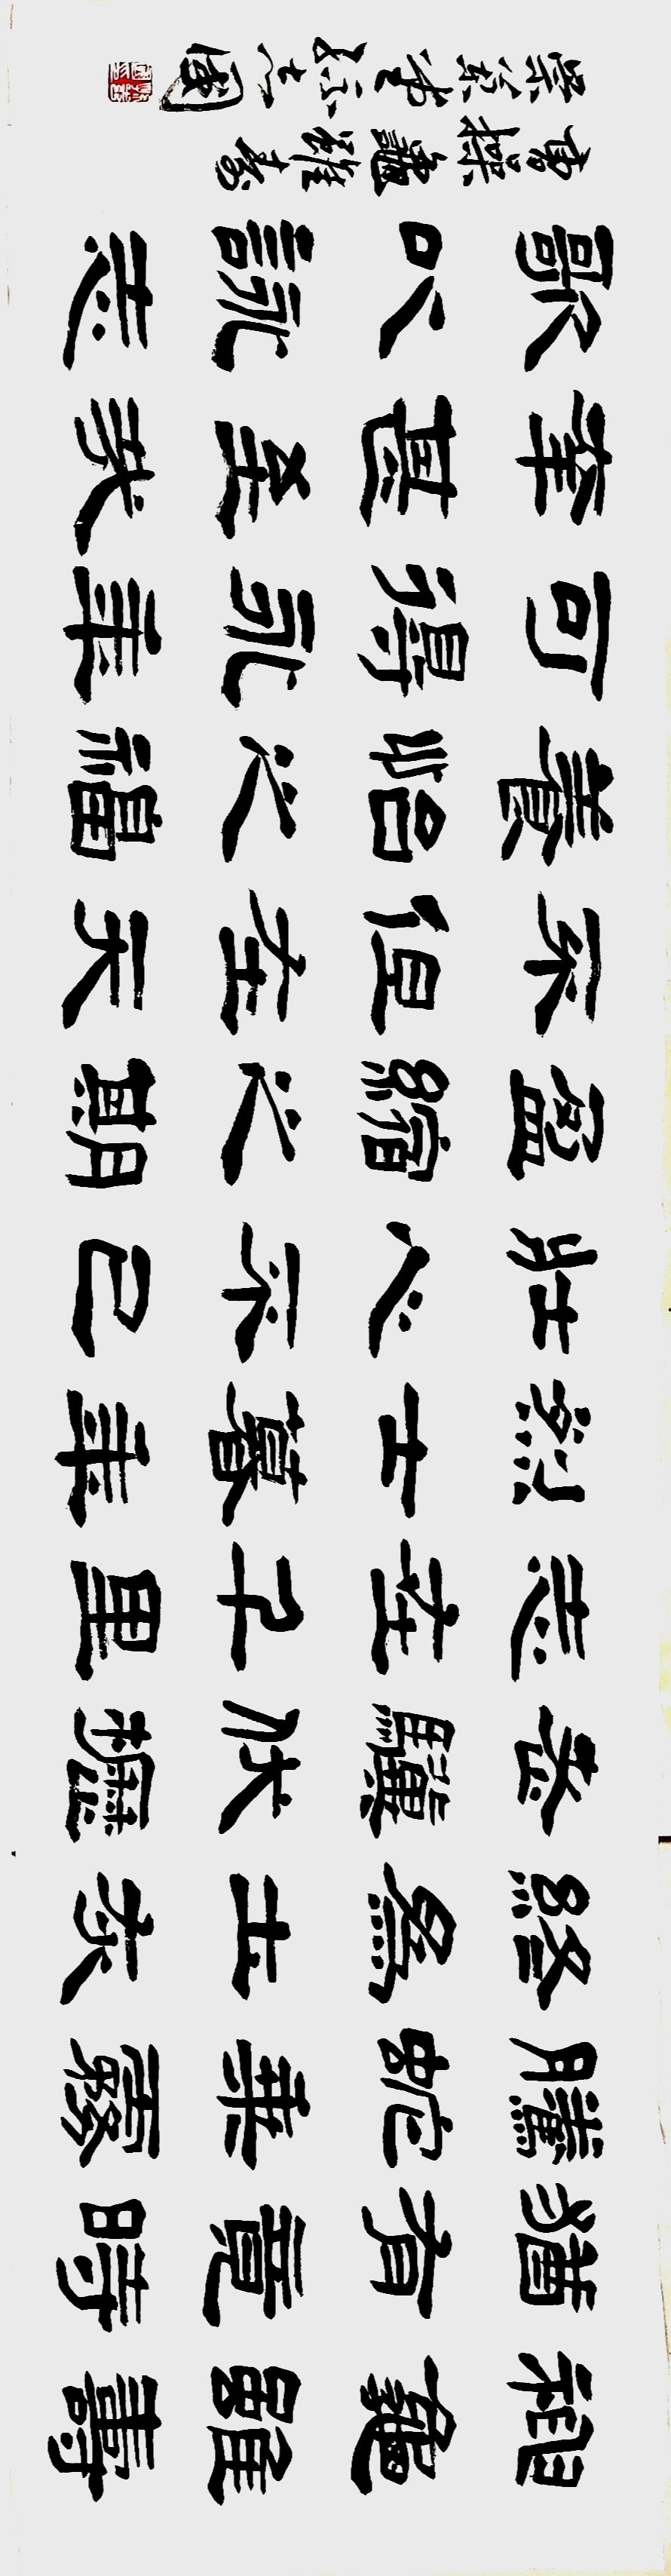 神龜雖壽
猶有竟時
騰蛇乘霧
終為土灰
老驥伏櫪
志在千里
烈士暮年
壯心不已
盈縮之期
不但在天
養怡之福
可得永年
幸甚至哉
歌以詠志
曹操龜雖壽